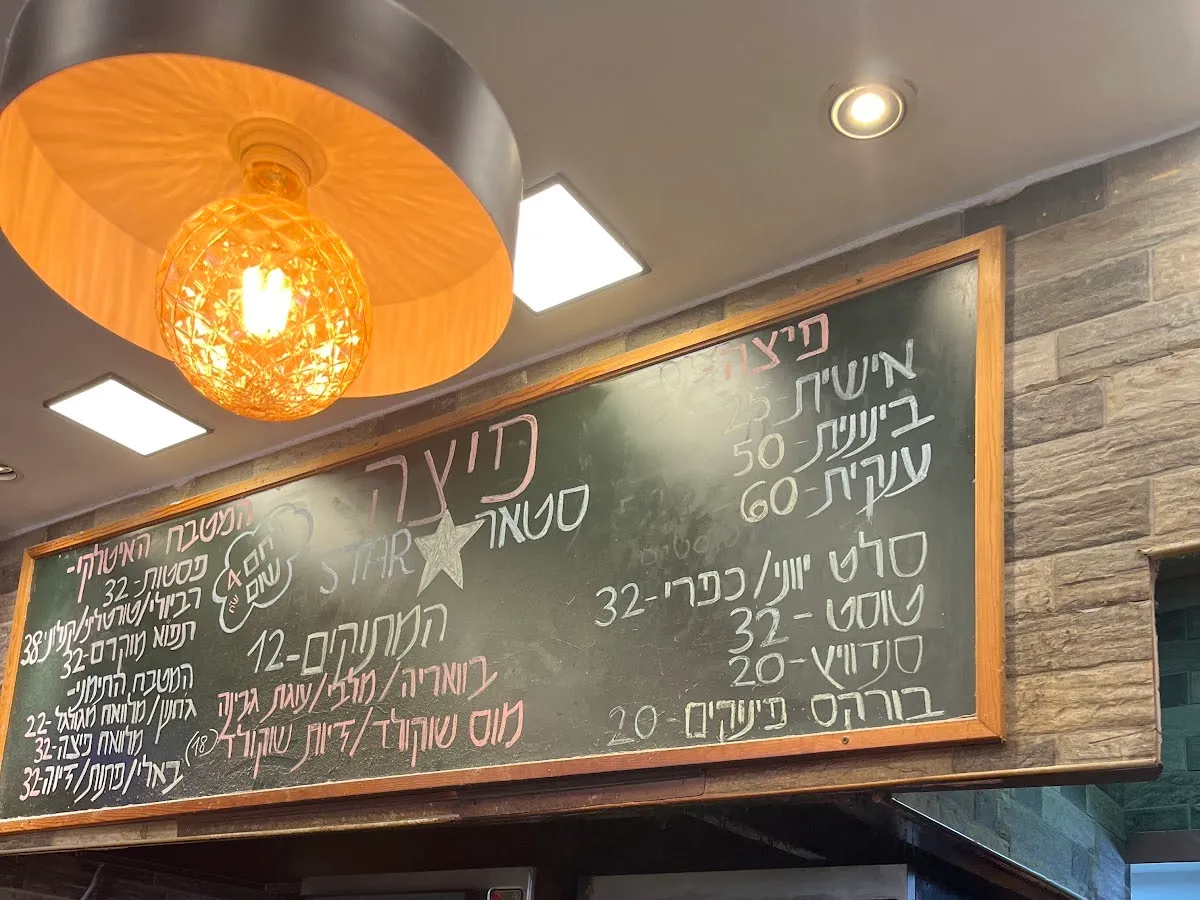 פיצה
אישית-25
בינונית-50
ענקית-60
סלט יווני/כפרי-32
טוסט-32
סנדוויץ-20
בורקס פינוקים-20
פיצה
סטאר
STAR
המתוקים-12
בוואריה/מלבי/עוגת גבינה
מוס שוקולד/דיות שוקולד (18)
חם
4
שים
המטבח האיטלקי-
פסטות-32
רביולי/טורטליני/קלוני38
תפוא מוקרם-32
המטבח התימני-
גחנון/מלוואח מגולגל-22
מלוואח פיצה-32
באלי/פתות/זיווה-32